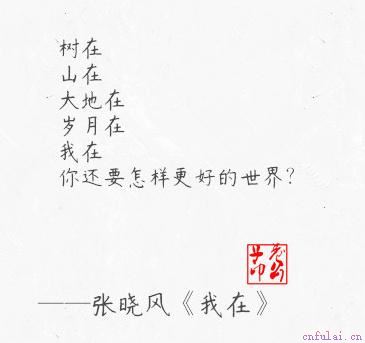 树在
山在
大地在
岁月在
我在
你还要怎样更好的世界?
——张晓风《我在》
cnfulai.cn